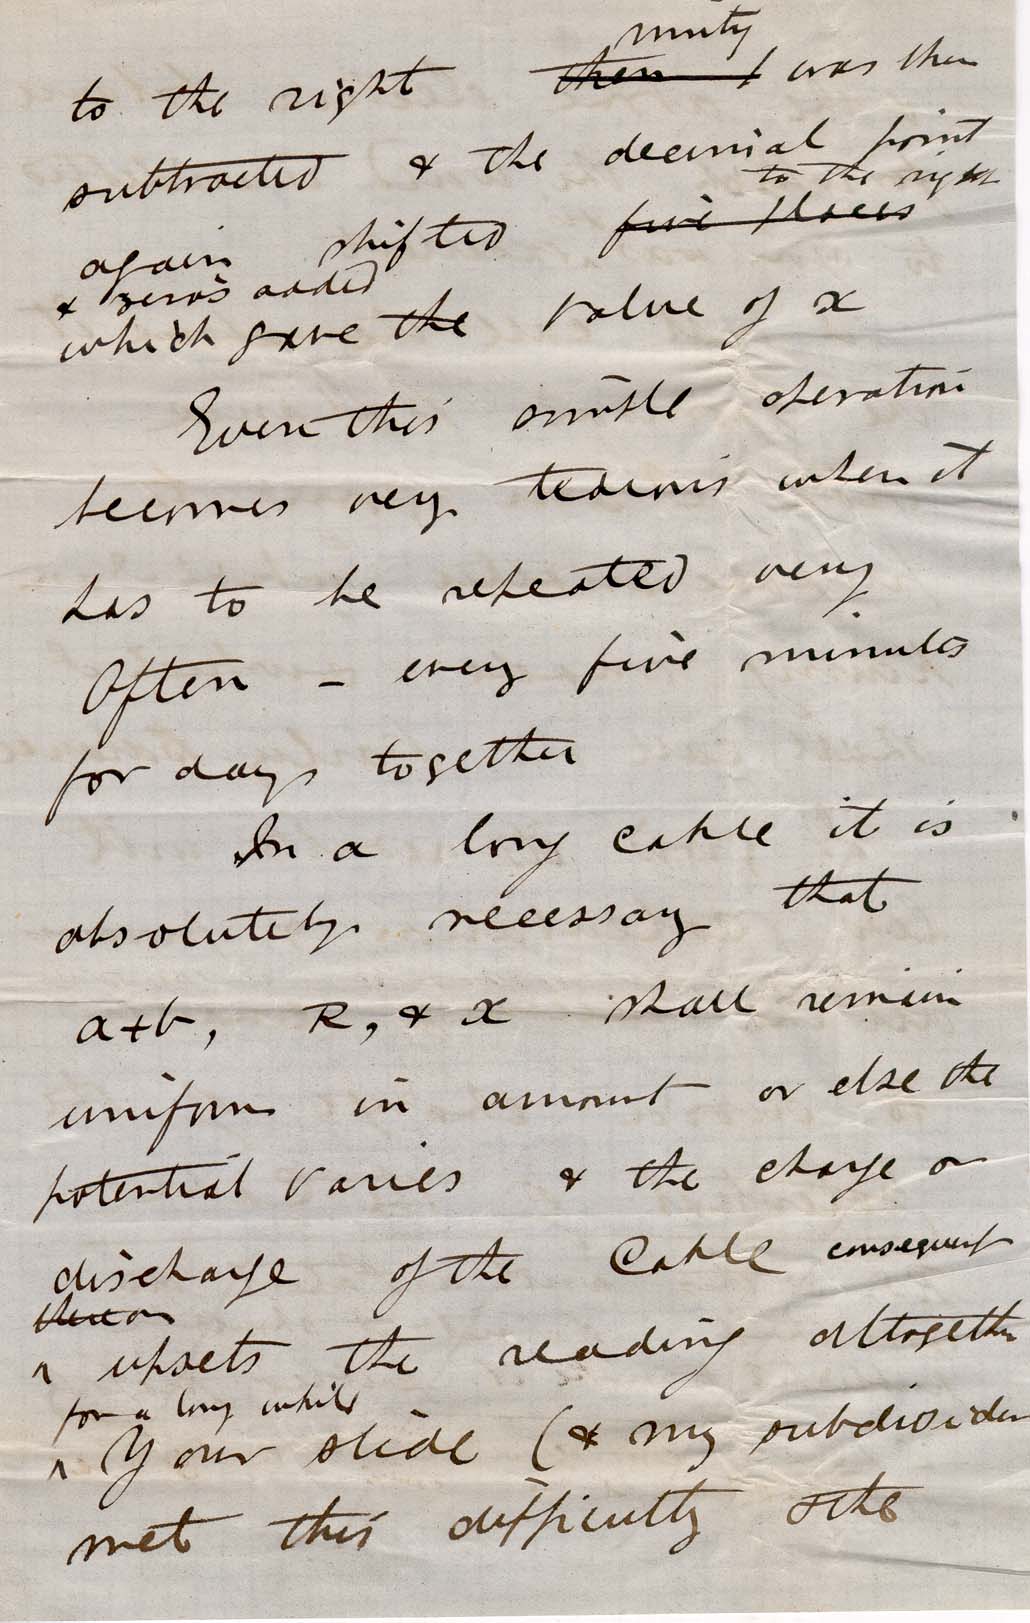 unity
to the right then 1 was then
subtracted & the decimal point
to the right
again shifted five places
& zeros added
which gave the value of x
Even this simple operation
becomes very tedious when it
has to be repeated very
Often – every five minutes
for days together
In a long cable it is
absolutely necessary that
a+b, R, & x shall remain
uniform in amount or else the
potential varies & the charge or
discharge of the Cable consequent
thereon
^ upsets the reading altogether
for a long while
^ Your slide (& my subdivider
met this difficulty & the